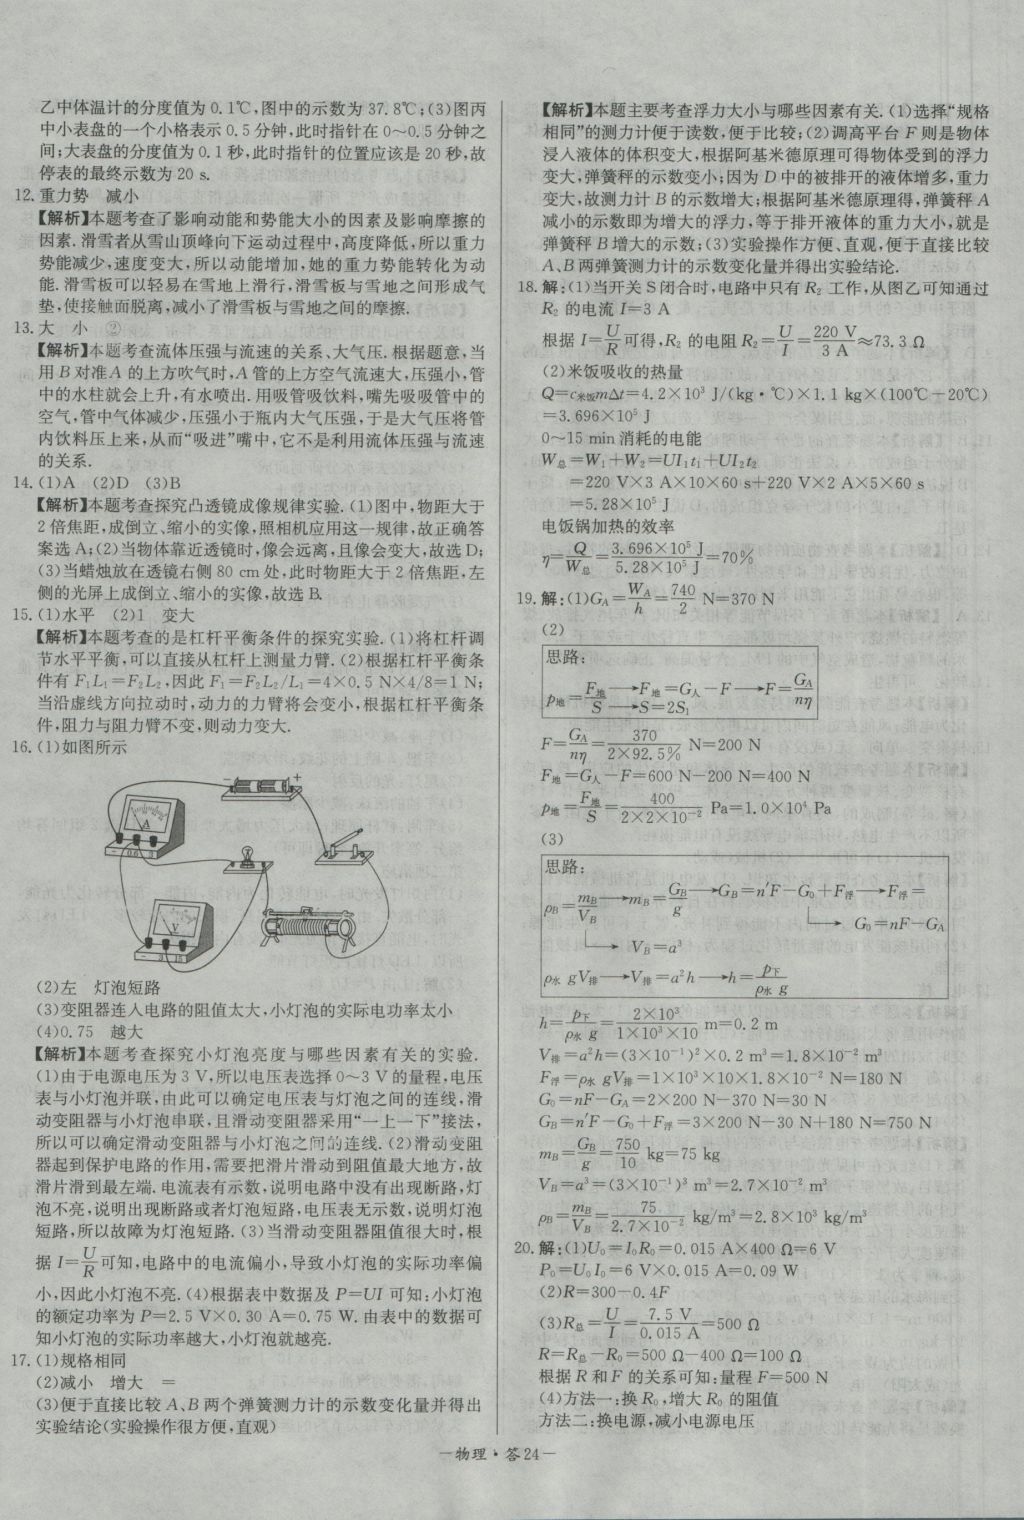 乙中体温计的分度值为 0.1℃,图中的示数为 37.8℃;(3)图丙
中小表盘的一个小格表示 0.5 分钟,此时指针在 0～0.5 分钟之
间;大表盘的分度值为 0.1 秒,此时指针的位置应该是 20 秒,故
停表的最终示数为 20 s.
12.重力势 减小
【解析】本题考查了影响动能和势能大小的因素及影响摩擦的
因素.滑雪者从雪山顶峰向下运动过程中,高度降低,所以重力
势能减少,速度变大,所以动能增加,她的重力势能转化为动
能.滑雪板可以轻易在雪地上滑行,滑雪板与雪地之间形成气
垫,使接触面脱离,减小了滑雪板与雪地之间的摩擦.
13.大 小 ②
【解析】本题考查流体压强与流速的关系、大气压.根据题意,当
用 B 对准 A 的上方吹气时,A 管的上方空气流速大,压强小,管
中的水柱就会上升,有水喷出.用吸管吸饮料,嘴先吸吸管中的
空气,管中气体减少,压强小于瓶内大气压强,于是大气压将管
内饮料压上来,从而“吸进”嘴中,它不是利用流体压强与流速
的关系.
14.(1)A (2)D (3)B
【解析】本题考查探究凸透镜成像规律实验.(1)图中,物距大于
2 倍焦距,成倒立、缩小的实像,照相机应用这一规律,故正确答
案选 A;(2)当物体靠近透镜时,像会远离,且像会变大,故选 D;
(3)当蜡烛放在透镜右侧 80 cm 处,此时物距大于 2 倍焦距,左
侧的光屏上成倒立、缩小的实像,故选 B.
15.(1)水平 (2)1 变大
【解析】本题考查的是杠杆平衡条件的探究实验.(1)将杠杆调
节水平平衡,可以直接从杠杆上测量力臂.(2)根据杠杆平衡条
件有 F₁L₁=F₂L₂,因此 F₁=F₂L₂/L₁=4×0.5 N×4/8=1 N;
当沿虚线方向拉动时,动力的力臂将会变小,根据杠杆平衡条
件,阻力与阻力臂不变,则动力变大.
16.(1)如图所示
− +
A
− 0.6 3
V
− 3 15
(2)左 灯泡短路
(3)变阻器连入电路的阻值太大,小灯泡的实际电功率太小
(4)0.75 越大
【解析】本题考查探究小灯泡亮度与哪些因素有关的实验.
(1)由于电源电压为 3 V,所以电压表选择 0～3 V 的量程,电压
表与小灯泡并联,由此可以确定电压表与灯泡之间的连线,滑
动变阻器与小灯泡串联,且滑动变阻器采用“一上一下”接法,
所以可以确定滑动变阻器与小灯泡之间的连线.(2)滑动变阻
器起到保护电路的作用,需要把滑片滑动到阻值最大地方,故
滑片滑到最左端.电流表有示数,说明电路中没有出现断路,灯
泡不亮,说明出现断路或者灯泡短路,电压表无示数,说明灯泡
短路,所以故障为灯泡短路.(3)当滑动变阻器阻值很大时,根
据 I=U/R 可知,电路中的电流偏小,导致小灯泡的实际功率偏
小,因此小灯泡不亮.(4)根据表中数据及 P=UI 可知:小灯泡
的额定功率为 P=2.5 V×0.30 A=0.75 W.由表中的数据可
知小灯泡的实际功率越大,小灯泡就越亮.
17.(1)规格相同
(2)减小 增大 =
(3)便于直接比较 A、B 两个弹簧测力计的示数变化量并得出
实验结论(实验操作很方便,直观)
【解析】本题主要考查浮力大小与哪些因素有关.(1)选择“规格
相同”的测力计便于读数,便于比较;(2)调高平台 F 则是物体
浸入液体的体积变大,根据阿基米德原理可得物体受到的浮力
变大,弹簧秤的示数变小;因为 D 中的被排开的液体增多,重力
变大,故测力计 B 的示数增大;根据阿基米德原理得,弹簧秤 A
减小的示数即为增大的浮力,等于排开液体的重力大小,就是
弹簧秤 B 增大的示数;(3)实验操作方便、直观,便于直接比较
A、B 两弹簧测力计的示数变化量并得出实验结论.
18.解:(1)当开关 S 闭合时,电路中只有 R₂ 工作,从图乙可知通过
R₂ 的电流 I=3 A
根据 I=U/R 可得,R₂ 的电阻 R₂=U/I=220 V/3 A≈73.3 Ω
(2)米饭吸收的热量
Q=c米饭mΔt=4.2×10³ J/(kg·℃)×1.1 kg×(100℃−20℃)
=3.696×10⁵ J
0～15 min 消耗的电能
W总=W₁+W₂=UI₁t₁+UI₂t₂
=220 V×3 A×10×60 s+220 V×2 A×5×60 s
=5.28×10⁵ J
电饭锅加热的效率
η=Q/W总=3.696×10⁵ J/5.28×10⁵ J=70%
19.解:(1)G_A=W_A/h=740/2 N=370 N
(2)
思路:
p地=F地/S→F地=G人−F→F=G_A/nη
→S=2S₁
F=G_A/nη=370/2×92.5% N=200 N
F地=G人−F=600 N−200 N=400 N
p地=F地/S=400/2×2×10⁻² Pa=1.0×10⁴ Pa
(3)
思路:
ρ_B=m_B/V_B→m_B=G_B/g→G_B=n′F−G₀+F浮→F浮=
→G₀=nF−G_A
→V_B=a³
ρ水gV排→V排=a²h→h=p下/ρ水g
h=p下/ρ水g=2×10³/1×10³×10 m=0.2 m
V排=a²h=(3×10⁻¹)²×0.2 m³=1.8×10⁻² m³
F浮=ρ水gV排=1×10³×10×1.8×10⁻² N=180 N
G₀=nF−G_A=2×200 N−370 N=30 N
G_B=n′F−G₀+F浮=3×200 N−30 N+180 N=750 N
m_B=G_B/g=750/10 kg=75 kg
V_B=a³=(3×10⁻¹)³ m³=2.7×10⁻² m³
ρ_B=m_B/V_B=75/2.7×10⁻² kg/m³=2.8×10³ kg/m³
20.解:(1)U₀=I₀R₀=0.015 A×400 Ω=6 V
P₀=U₀I₀=6 V×0.015 A=0.09 W
(2)R=300−0.4F
(3)R总=U/I=7.5 V/0.015 A=500 Ω
R=R总−R₀=500 Ω−400 Ω=100 Ω
根据 R 和 F 的关系可知:量程 F=500 N
(4)方法一:换 R₀,增大 R₀ 的阻值
方法二:换电源,减小电源电压
—物理·答24—